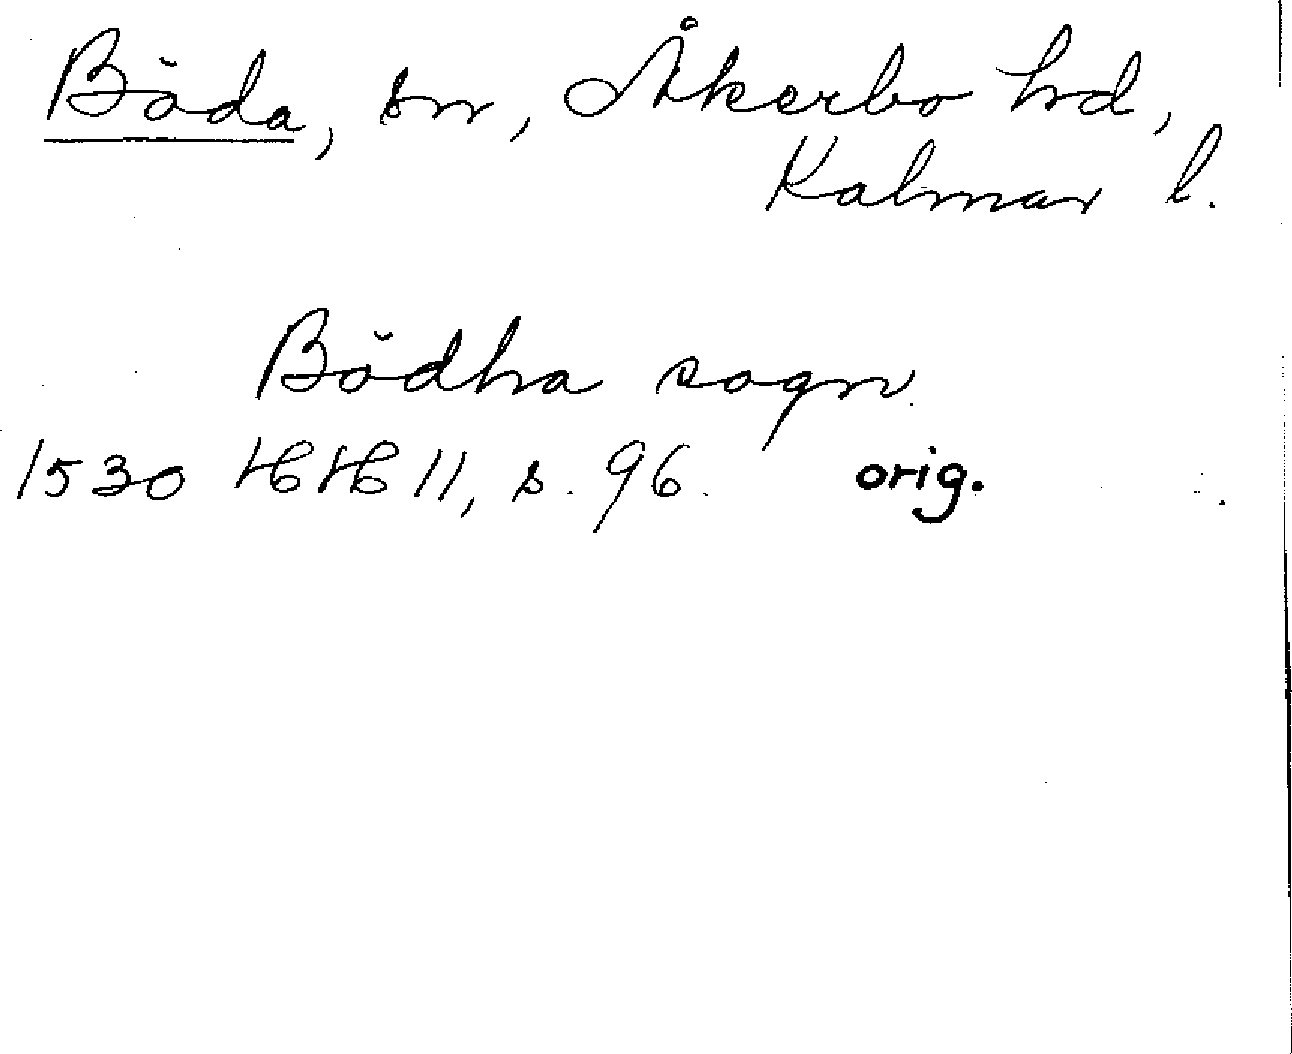 Böda, sn, Åkerbo hd,
Kalmar l.
Bödha sogn
1530 HH 11, s. 96. orig.